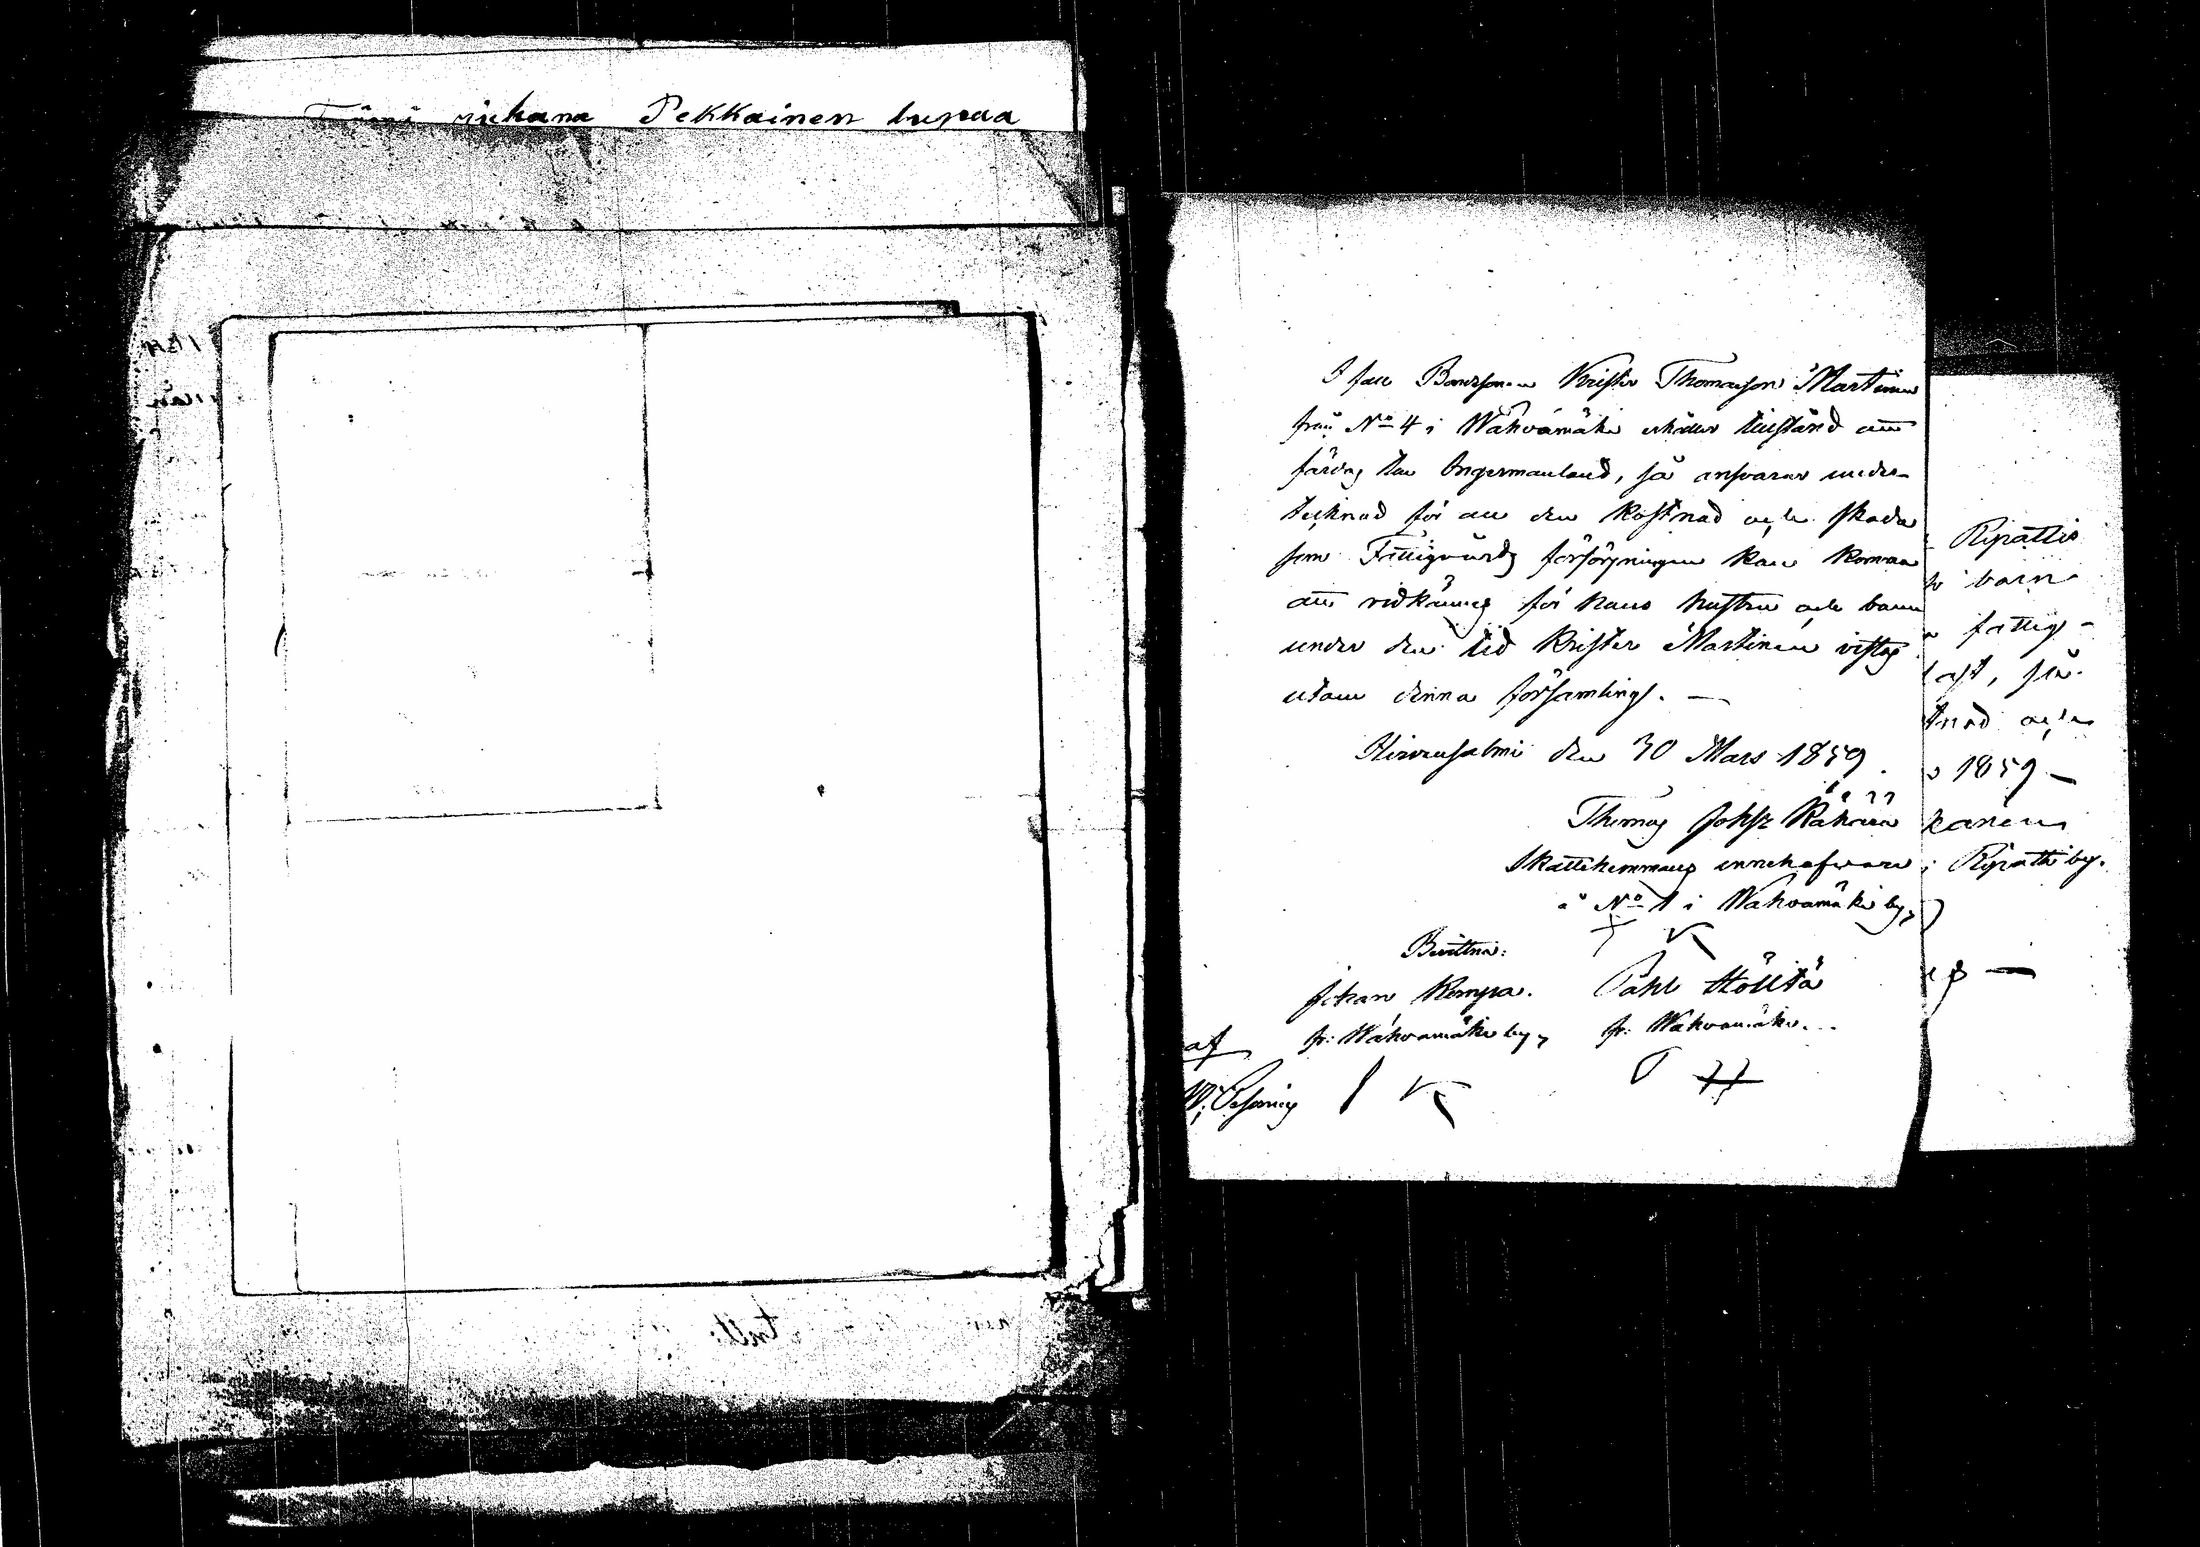 Pekkainen lupaa
I fall Bondsonen Krister Thomasson Martinen
från No 4 i Wahvamäki erhåller tillstånd att
färdas till Ingermanland, så ansvarar under-
tecknad för all den kostnad och skada
som Fattigvårds försörjningen kan komma
att vidkännas för hans hustru och barn
under den tid Krister Martinen vistas
utom denna församling. —
Hirvensalmi den 30 Mars 1859.
Thomas Johsz Kähärä
Skattehemmans innehafware
å No 1 i Wahvamäki by,
Bevittna:
Johan Kemppa. Påhl Hölttä
fr: Wahvamäki by, fr: Wahvamäki.
af
Ripattis
barn
fattig-
last, så
tnad och
1859 —
kanen
i Ripatti by.